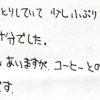 とりしていて 少し小ぶり
十分でした。
あいますが、コーヒーとの
です。